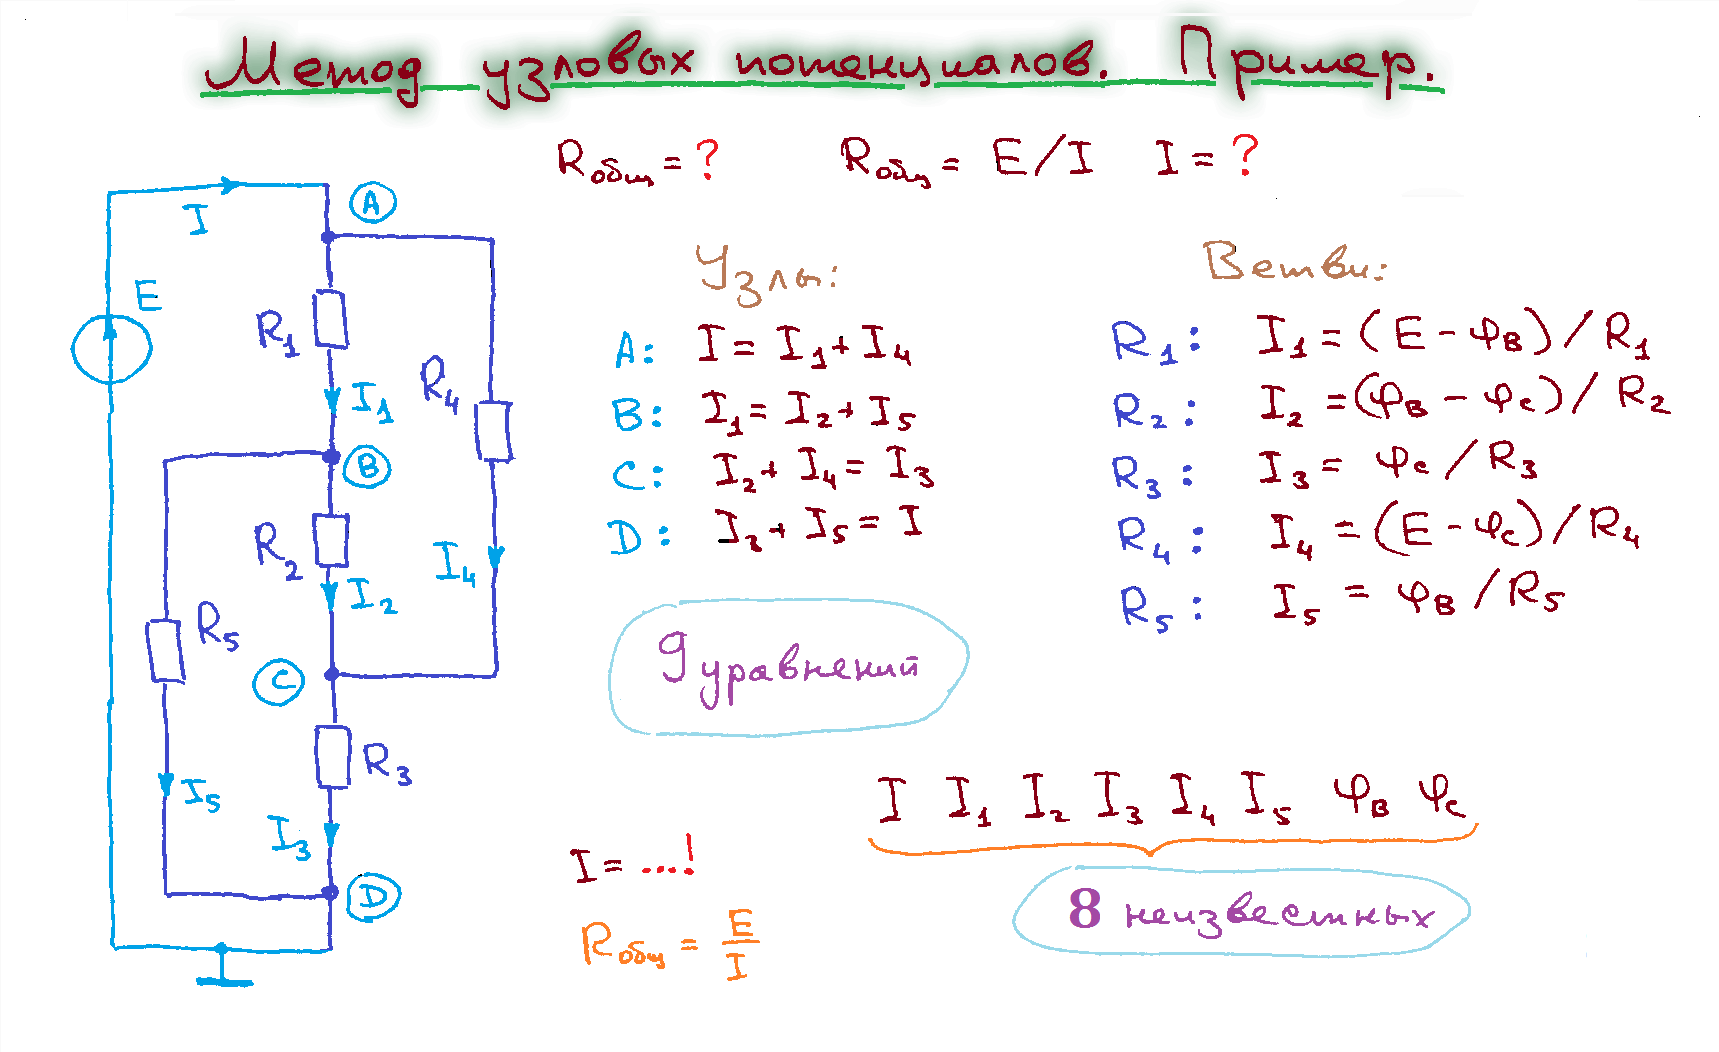 Метод узловых потенциалов. Пример.
Rобщ = ? Rобщ = E/I I = ?
I
A
E
R1
I1
R4
B
R2
I2
I4
R5
C
R3
I5
I3
D
Узлы:
A: I = I1 + I4
B: I1 = I2 + I5
C: I2 + I4 = I3
D: I3 + I5 = I
9 уравнений
Ветви:
R1: I1 = (E - φB) / R1
R2: I2 = (φB - φC) / R2
R3: I3 = φC / R3
R4: I4 = (E - φC) / R4
R5: I5 = φB / R5
I I1 I2 I3 I4 I5 φB φC
8 неизвестных
I = ...!
Rобщ = E/I